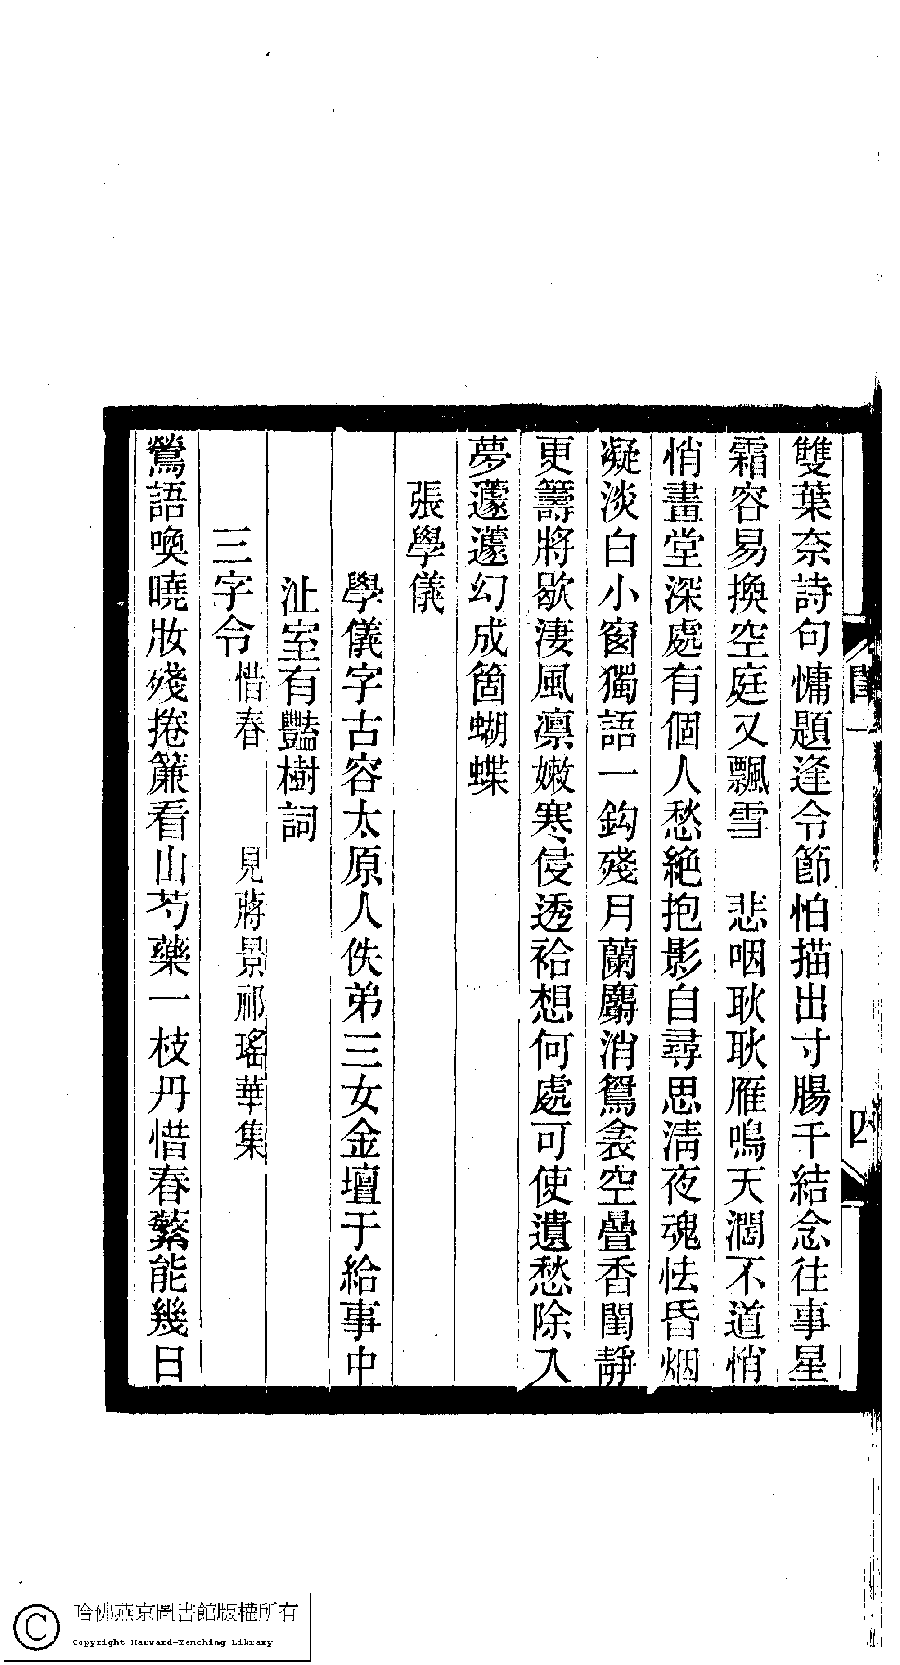 雙葉奈詩句慵題逢令節怕描出寸腸千結念往事星
霜容易換空庭又飄雪　悲咽耿耿雁鳴天濶不道悄
悄畫堂深處有個人愁絶抱影自尋思淸夜魂怯昏烟
凝淡白小窗獨語一鈎殘月蘭麝消鴛衾空疊香閨靜
更籌將歇淒風凛嫩寒侵透袷想何處可使遺愁除入
夢蘧蘧幻成箇蝴蝶
張學儀
學儀字古容太原人佚弟三女金壇于給事中
沚室有豔樹詞
三字令惜春　見蔣景祁瑤華集
鶯語喚曉妝殘捲簾看山芍藥一枝丹惜春蘩能幾日
四
哈佛燕京圖書館版權所有
Copyright Harvard-Yenching Library